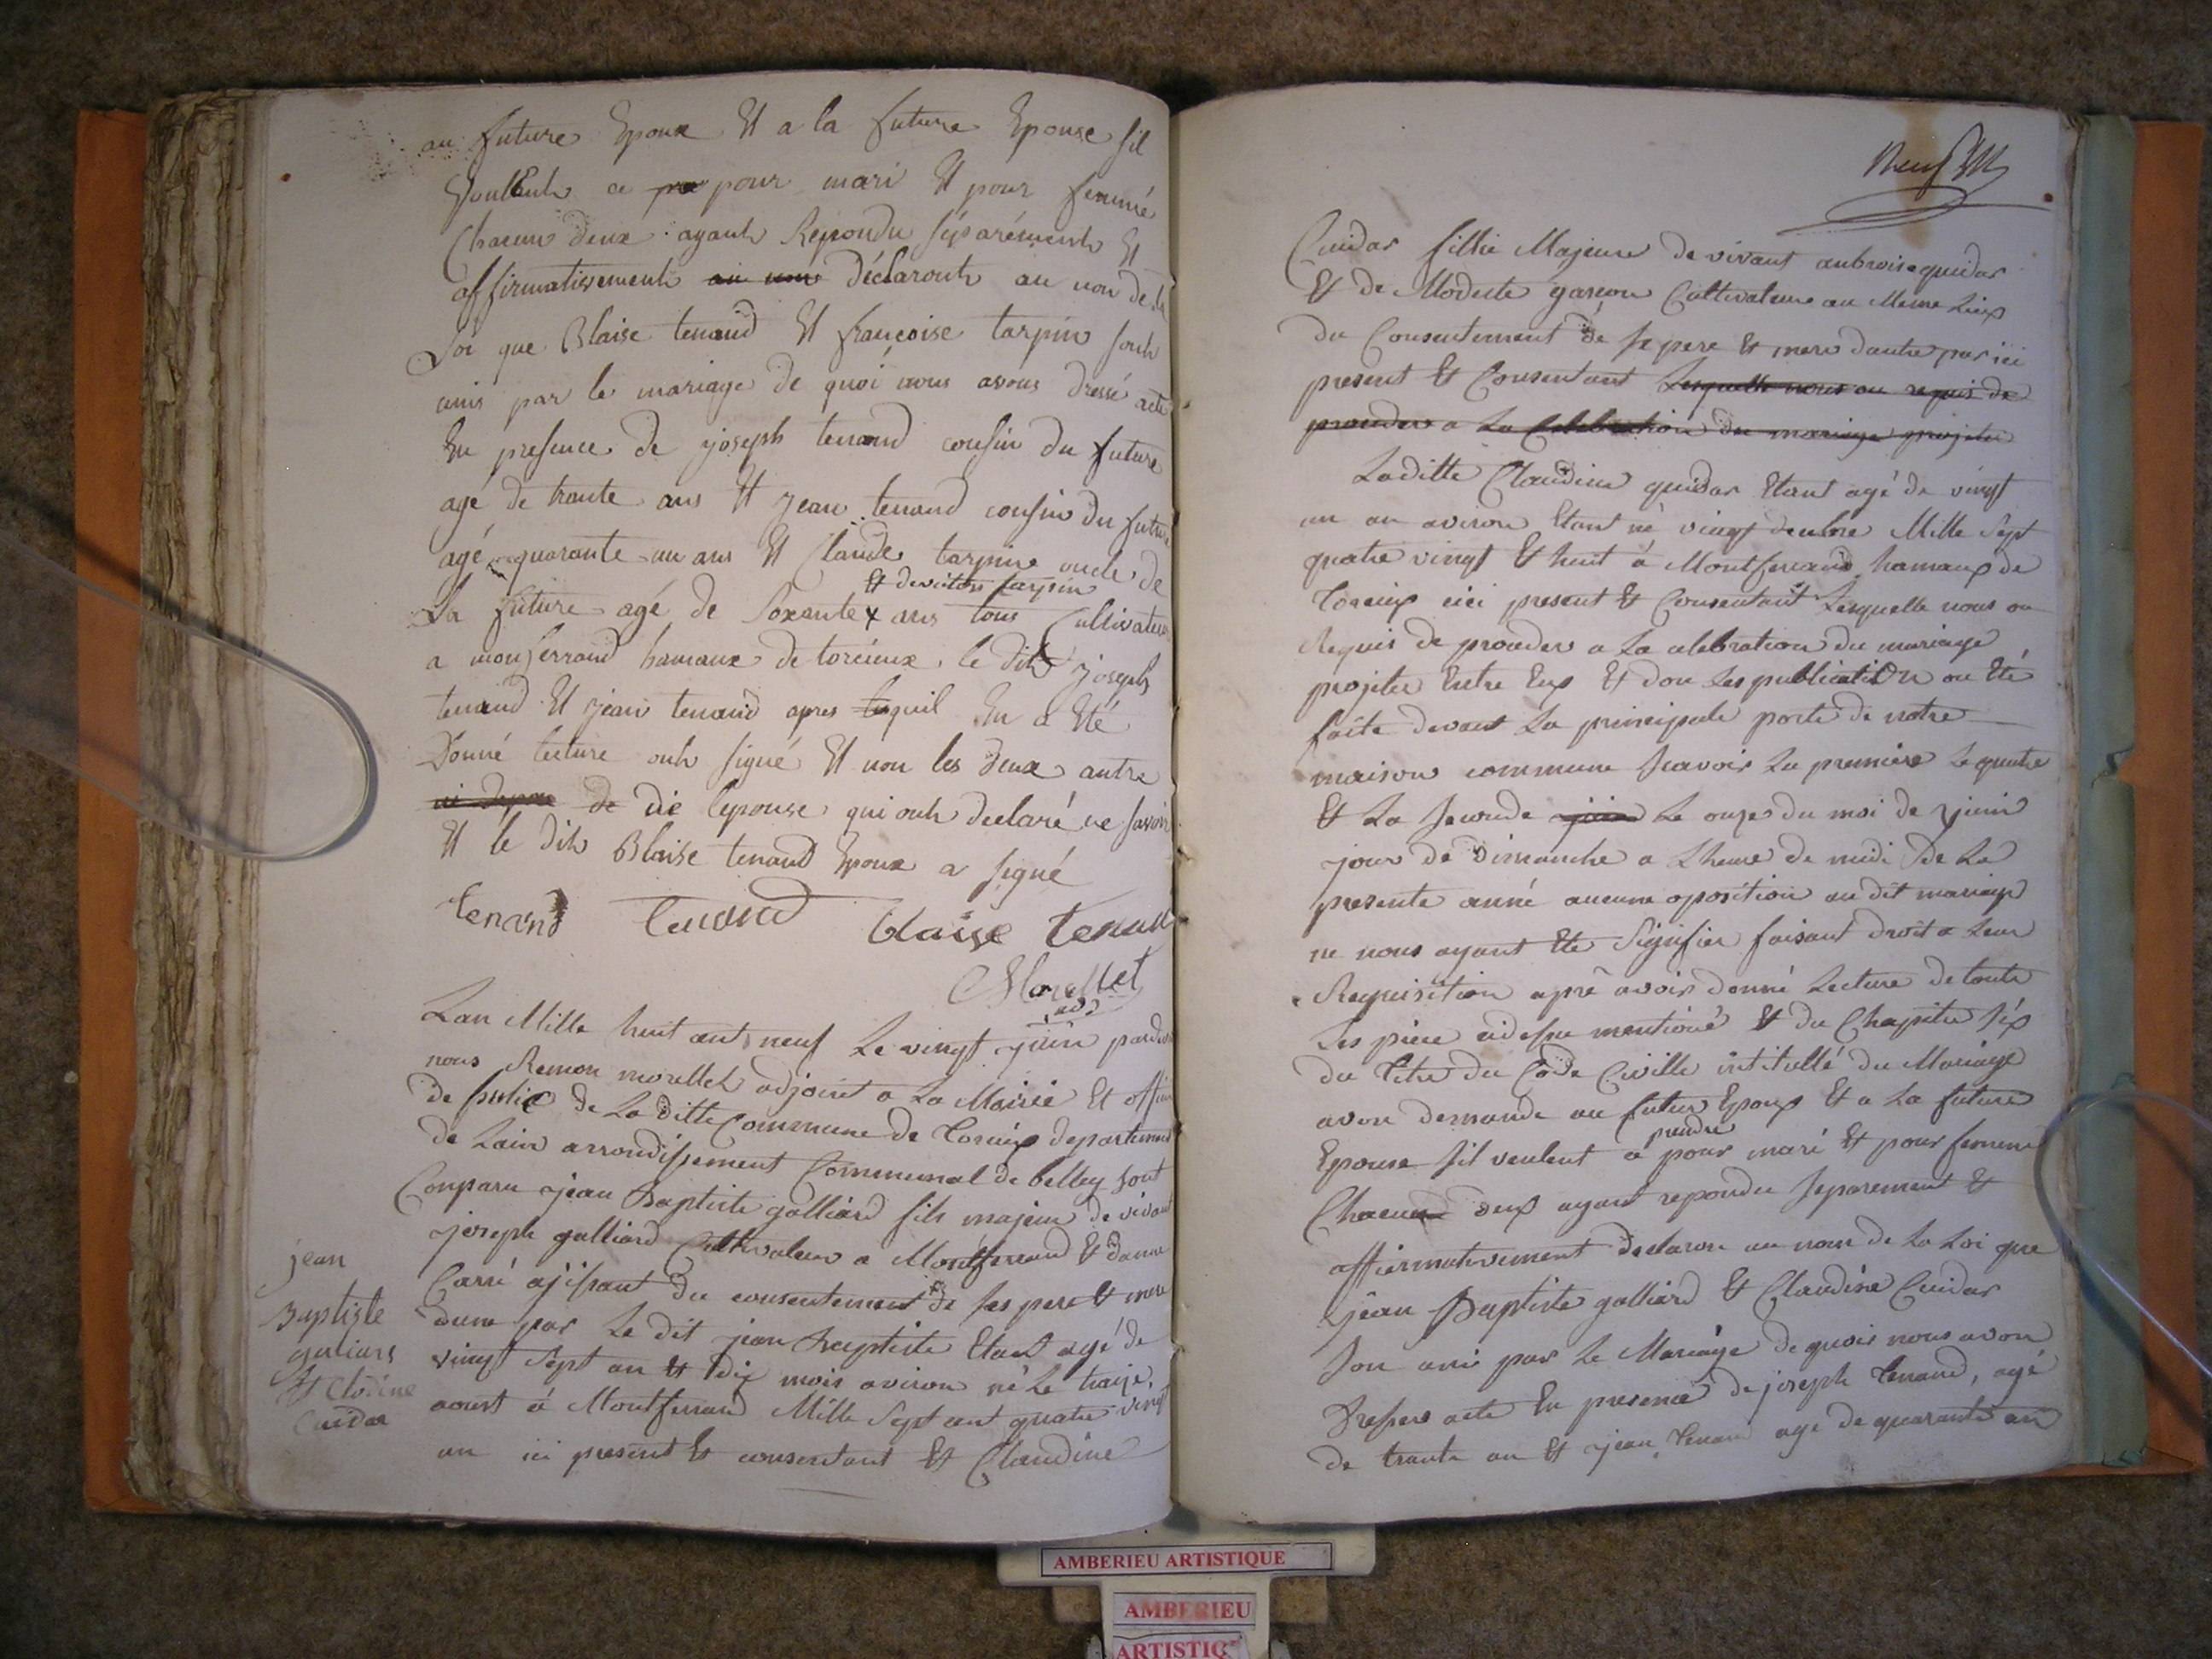 au future Epoux Et a la future Epouse sil
Voulent ce pour mari Et pour femme
Chacun deux ayant Repondu séparément Et
affirmativement déclaront au non de la
Loi que Blaise tenand Et françoise tarpin sont
unis par le mariage de quoi nous avons dressé acte
En presence de joseph tenand cousin du future
agé de trante ans Et jean tenand cousin du future
agé quarante un ans Et Claude tarpin oncle de
Et tarpin
La future agé de soxante x ans tous Cultivateur
a monferrand hamaux de torcieux le dit joseph
tenand Et jean tenand apres quil En a Eté
Donné lecture ont signé Et non les deux autre
de die lepouse qui ont declaré ne savoir
Et le dit Blaise tenand Epoux a signé
tenand tenand blaise tenan
Morellet
adj
Lan Mille huit cent neuf Le vingt juin pardev
nous Remon morellet adjoint a La Mairie Et offici
de de La ditte Commune de Torcieux departement
de Lain arrondissement Communal de belley sont
Conparu jean Baptiste galliard fils majeur de vivant
joseph galliard Cultivateur a Montferrand Et danne
Carré ajissant du consentement de ses pere Et mere
dune par Le dit jean Baptiste Etant agé de
vingt sept an Et dix mois aviron né Le traize
aoust á Montferrand Mille sept cent quatre vingt
un ici present Et consentant Et Claudine
jean
Baptiste
galiars
Et Clodine
Cuidar
Neuf
Cuidar fillie Majeure de vivant anbroise guidar
Et de Modeste garçon Cultivateur au Meme Lieux
du Consentement de se pere Et mere dautre par ici
present Et Consentant Lesquelle nous on requis de
proceder a La Celebration du mariage projeter
Laditte Claudine guidar Etant agé de vingt
un an aviron Etant né vingt Mille sept
quatre vingt Et huit á Montferrand hamaux de
Torcieux ici present Et Consentant Lesquelle nous on
Requis de proceder a La celebration du mariage
projeter Entre Eux Et don Les publication on Eté
faite devant La principale porte de notre
maison commune scavoir La premiere Le quatre
Et La seconde juin Le onze du moi de juin
jour de dimanche a Lheure de midi de La
presente anné aucune oposition au dit mariage
ne nous ayant Ete signifier faisant droit a Leur
Requisition apré avoir donné Lecture de toute
Les piece cidessu mentioné Et du Chapitre six
du Titre du Code Civille intitullé du Mariage
avon demande au futur Epoux Et a La future
prendre
Epouse sil veulent ce pour mari Et pour femme
Chacun deux ayant repondu separement Et
affirmativement declaron au nom de La Loi que
jean Baptiste galliard Et Claudine Cuidar
son uni par Le Mariage de quoi nous avon
dresser acte En presence de joseph Tenand, agé
de trante an Et jean Tenand age de quarante an
AMBERIEU ARTISTIQUE
AMBERIEU
ARTISTIQ